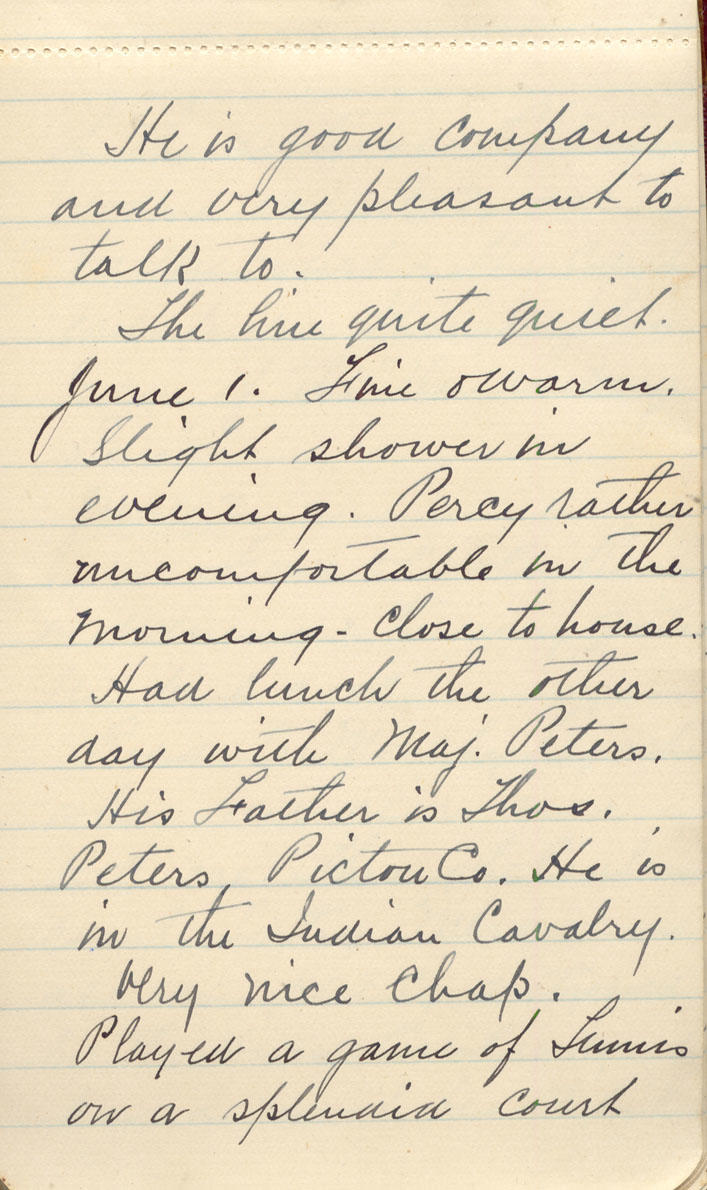 He is good company
and very pleasant to
talk to.
The line quite quiet.
June 1. Fine & warm.
Slight shower in
evening. Percy rather
uncomfortable in the
morning - close to house.
Had lunch the other
day with Maj. Peters.
His Father is Thos.
Peters, Pictou Co. He is
in the Indian Cavalry.
Very nice chap.
Played a game of Tennis
on a splendid court